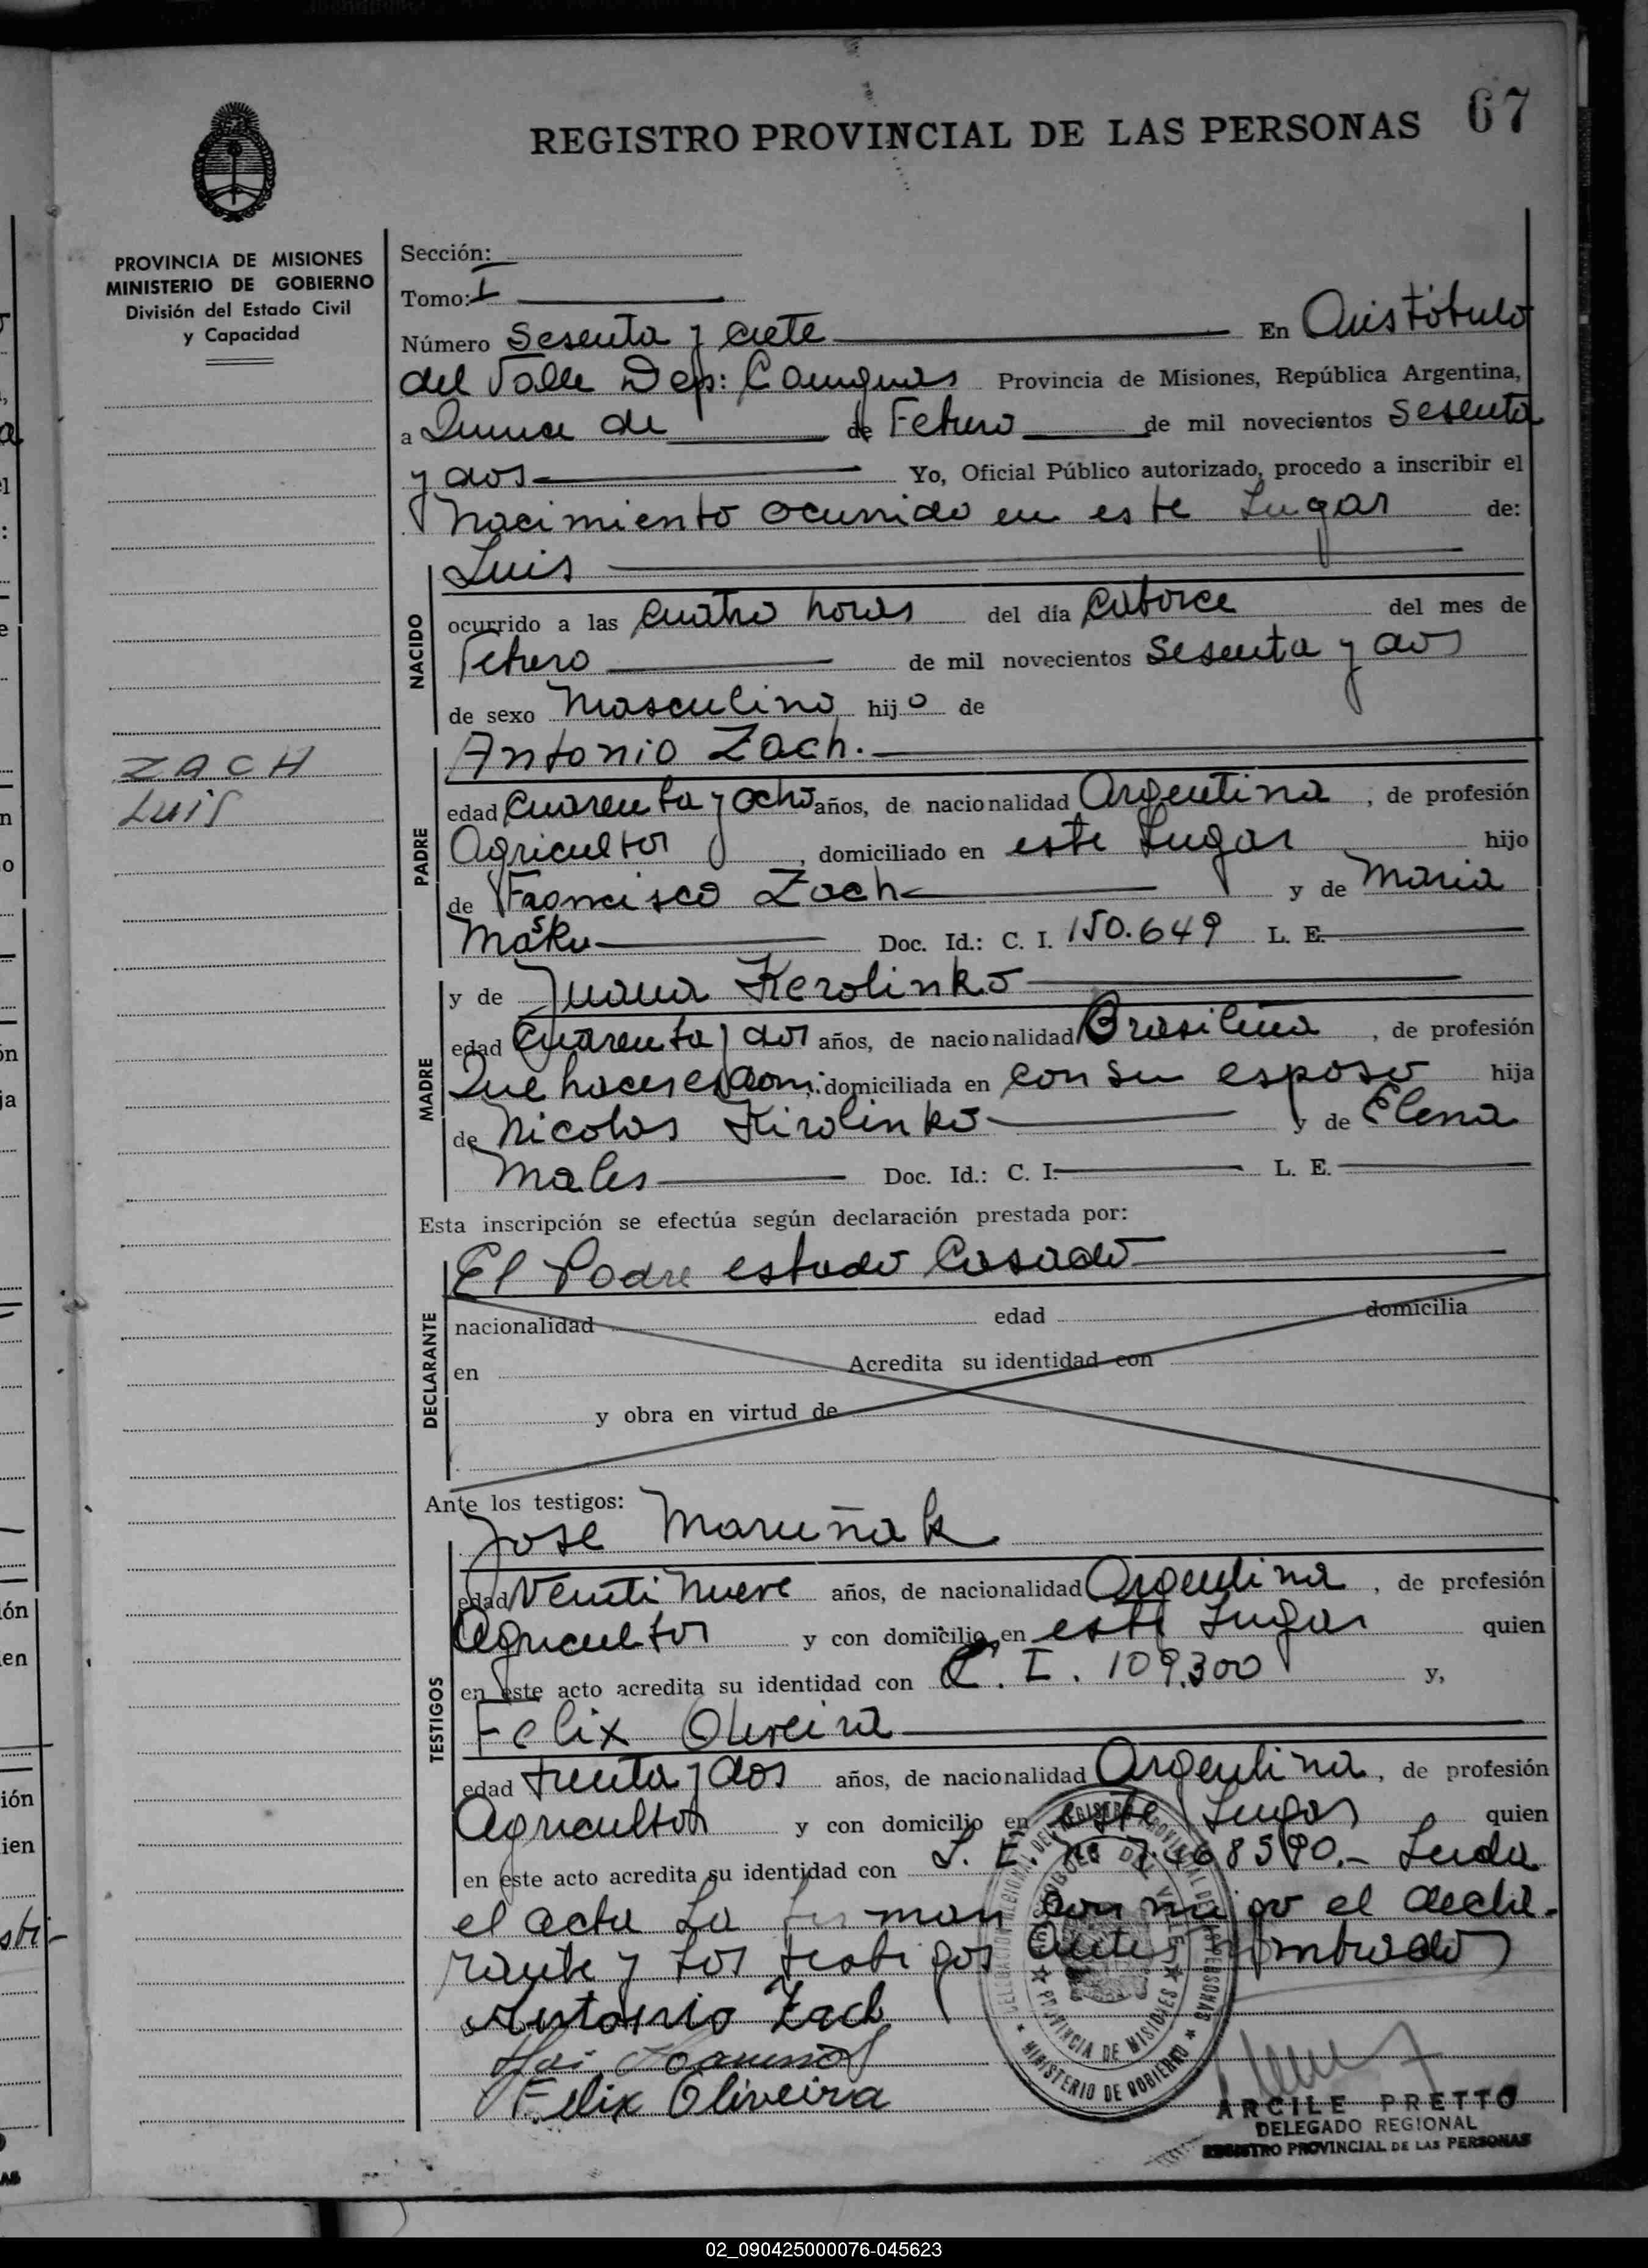 67
REGISTRO PROVINCIAL DE LAS PERSONAS
PROVINCIA DE MISIONES
MINISTERIO DE GOBIERNO
División del Estado Civil
y Capacidad
ZACH
LUIS
Sección:
Tomo: I
Número Sesenta y ciete En Aristóbulo
del Valle Dep: Cainguas Provincia de Misiones, República Argentina,
a Quince de de Febrero de mil novecientos Sesenta
y dos Yo, Oficial Público autorizado, procedo a inscribir el
Nacimiento ocurrido en este Lugar de:
NACIDO
Luis
ocurrido a las Cuatro horas del día Catorce del mes de
Febrero de mil novecientos Sesenta y dos
de sexo Masculino hijo de
PADRE
Antonio Zach.
edad Cuarenta y ocho años, de nacionalidad Argentina, de profesión
Agricultor, domiciliado en este Lugar hijo
de Francisco Zach y de Maria
Masku Doc. Id.: C. I. 150.649 L. E.
MADRE
y de Juana Kerolinko
edad Cuarenta y dos años, de nacionalidad Brasileña, de profesión
Que haceres dom: domiciliada en con su esposo hija
de Nicolas Kirolinko y de Elena
Males Doc. Id.: C. I. L. E.
Esta inscripción se efectúa según declaración prestada por:
DECLARANTE
El Padre estado Casado
nacionalidad edad domicilia
en Acredita su identidad con
y obra en virtud de
Ante los testigos:
TESTIGOS
Jose Maruñak
edad Veinti Nueve años, de nacionalidad Argentina, de profesión
Agricultor y con domicilio en este Lugar quien
en este acto acredita su identidad con C. I. 109.300 y,
Felix Oliveira
edad treinta y dos años, de nacionalidad Argentina, de profesión
Agricultor y con domicilio en este Lugar quien
en este acto acredita su identidad con L. E. Nº 7.468590.- Leida
el acta La firman con migo el decla-
rante y Los testigos antes nombrados
Antonio Zach
Felix Oliveira
PROVINCIA DE MISIONES
MINISTERIO DE GOBIERNO
ARCILE PRETTO
DELEGADO REGIONAL
REGISTRO PROVINCIAL DE LAS PERSONAS
02_090425000076-045623